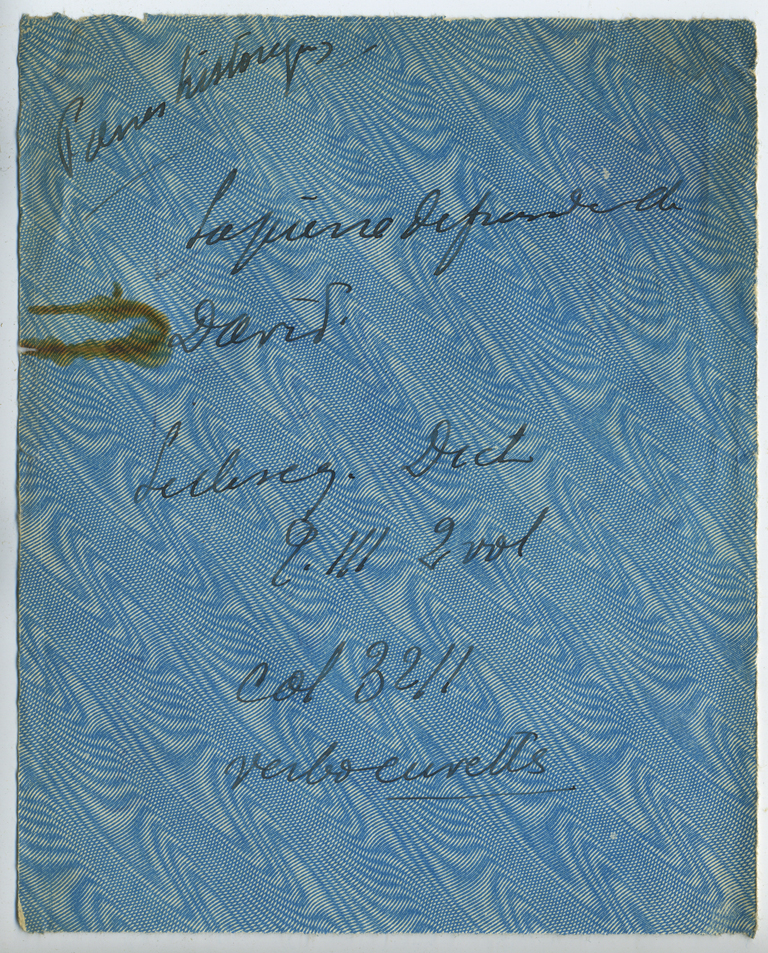 Pierres historiques
La pierre de fronde de
David.
Leclercq. Dict
T. III 2 vol
col 3211
verbo cuvette